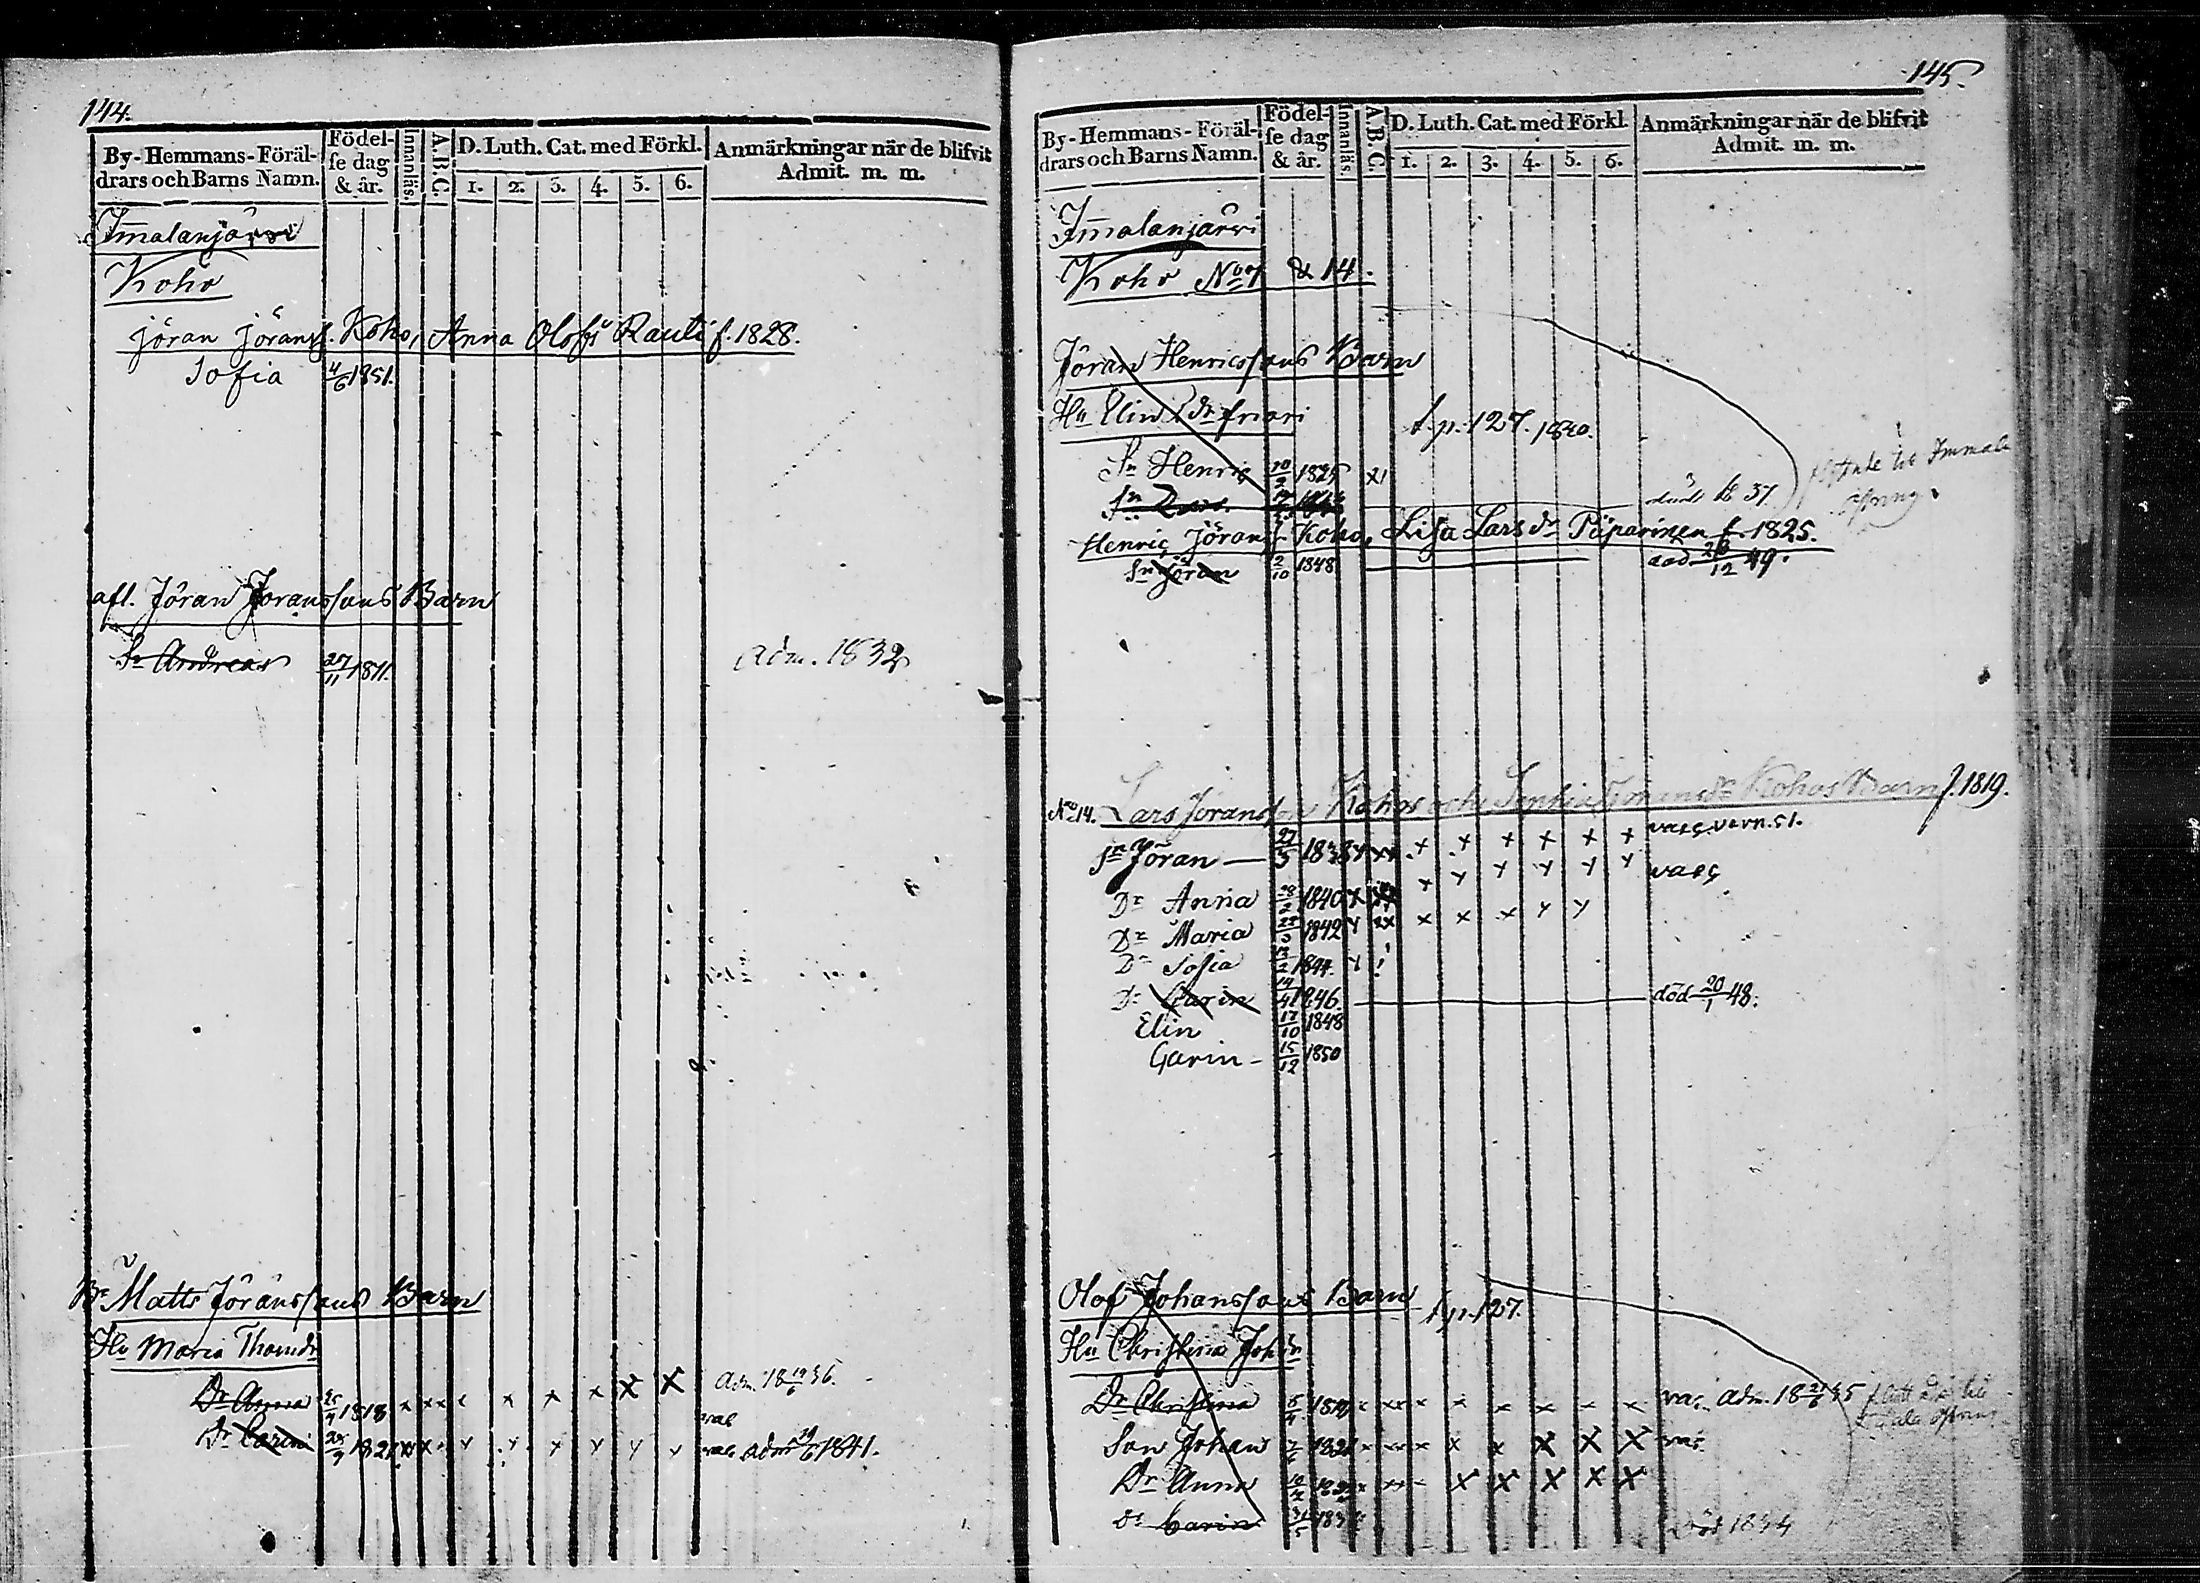 144.
By-Hemmans-Föräl-
drars och Barns Namn.
Födel-
se dag
& år.
Innanläs.
A.B.C.
D. Luth. Cat. med Förkl.
1. 2. 3. 4. 5. 6.
Anmärkningar när de blifvit
Admit. m. m.
Immalanjärvi
Koho
Jöran Jöranss. Koho, Anna Olofs Rauti f. 1828.
Sofia 4/6 1851.
afl. Jöran Joranssons Barn
Sn Andreas 27/11 1811. adm. 1832
Br Matts Jöranssons Barn
Hu Maria Thomdr
Dr Anna 25/4 1818 x xx x x x x x x Adm. 18 19/6 36.
vac
Dr Carin 25/9 1821 xx x x x x x x x vac adm 19/6 1841.
145.
By-Hemmans-Föräl-
drars och Barns Namn.
Födel-
se dag
& år.
Innanläs.
A.B.C.
D. Luth. Cat. med Förkl.
1. 2. 3. 4. 5. 6.
Anmärkningar när de blifvit
Admit. m. m.
Immalanjärvi
Koho No 7 & 14.
Jöran Henricssons Barn
Hu Elin dr f. p. 127. 1840.
Sn Henric 1825 x
Sn Lars 37
Henric Jöranss. Koho, Lisa Lars dr Päparinen f. 1825.
Sn Jöran 2/10 1848 död 26/12 49.
No 14. Lars Joransson Kohos och Kohos Barn f. 1819.
sn Jöran — 27/3 1838 x xx x x x x x x vacc. vern. 51.
Dr Anna 28/2 1840 x xx x x x x x x vacc
Dr Maria 1842 x xx x x x x x
Dr Sofia 1844 x
Dr Carin 14/4 1846. död 20/1 48.
Elin 17/10 1848
Carin - 15/12 1850
Olof Johanssons Barn f. p. 127.
Hu Christina Joh dr
Dr Christina x xx x x x x x x vac. adm. 18
Son Johan x xx x x x x x x vac
Dr Anna x xx x x x x x
Dr Carin 31/5 död 1834